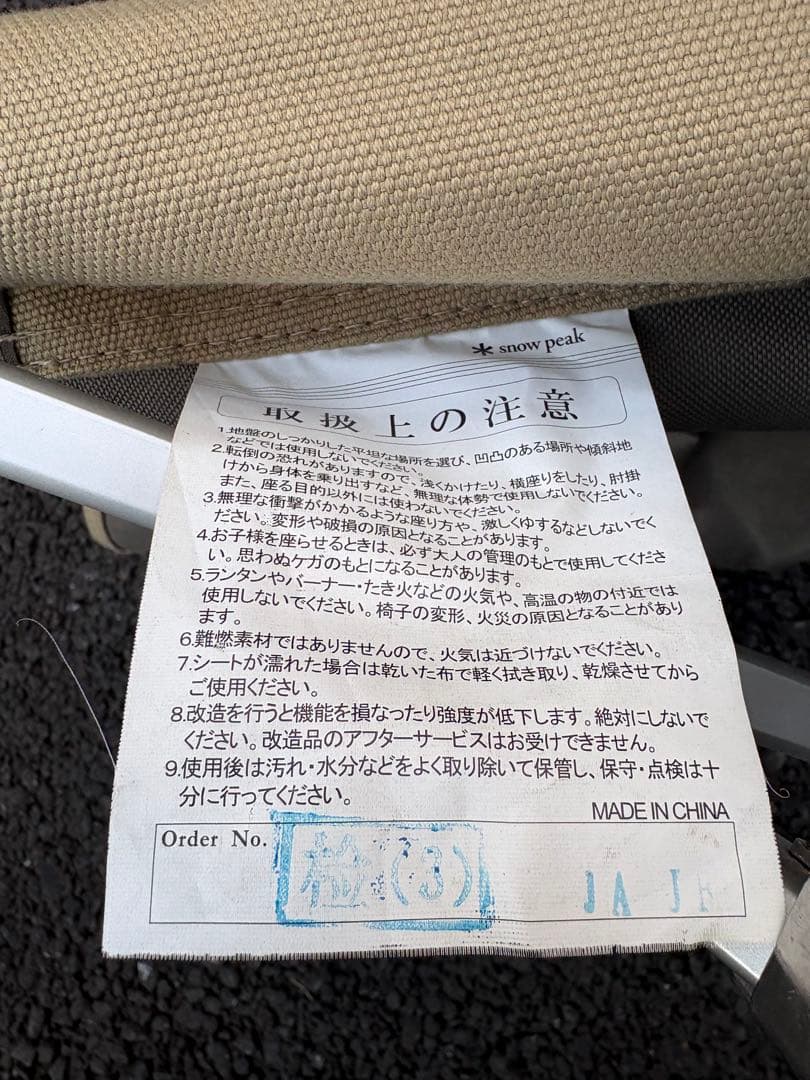 snow peak
取扱上の注意
1.地盤のしっかりした平坦な場所を選び、凹凸のある場所や傾斜地
などでは使用しないでください。
2.転倒の恐れがありますので、浅くかけたり、横座りをしたり、肘掛
けから身体を乗り出すなど、無理な体勢で使用しないでください。
また、座る目的以外には使わないでください。
3.無理な衝撃がかかるような座り方や、激しくゆするなどしないでく
ださい。変形や破損の原因となることがあります。
4.お子様を座らせるときは、必ず大人の管理のもとで使用してくださ
い。思わぬケガのもとになることがあります。
5.ランタンやバーナー・たき火などの火気や、高温の物の付近では
使用しないでください。椅子の変形、火災の原因となることがあり
ます。
6.難燃素材ではありませんので、火気は近づけないでください。
7.シートが濡れた場合は乾いた布で軽く拭き取り、乾燥させてから
ご使用ください。
8.改造を行うと機能を損なったり強度が低下します。絶対にしないで
ください。改造品のアフターサービスはお受けできません。
9.使用後は汚れ・水分などをよく取り除いて保管し、保守・点検は十
分に行ってください。
MADE IN CHINA
Order No.
検(3)
JA